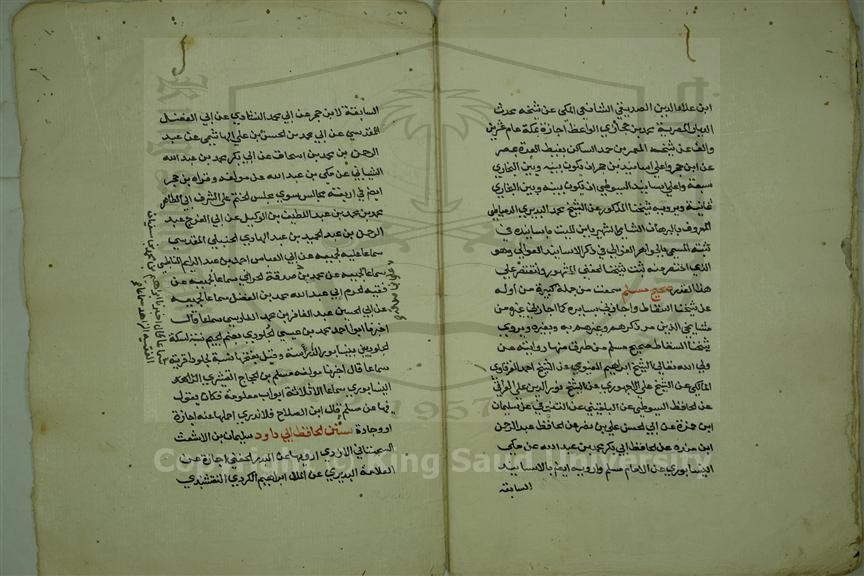 ابن علاء الدين الصديقي الشافعي المكي عن شيخه محدث
الديار المصرية محمد بن حجازي الواعظ اجازة بمكة عام عشرين
والف عن شيخه المعمر بن حمد الساكن بغيط العدة بمصر
عن ابن حجر واعلى اسانيد بن حجر ان يكون بينه وبين البخاري
سبعة واعلى اسانيد السيوطي ان يكون بينه وبين البخاري
ثمانية ويرويه شيخنا المذكور عن الشيخ محمد البديري الدمياطي
المعروف بالبرهان الشامي الشهير بابن الميت باسانيده في
ثبته المسمى بالجواهر الغوالي في ذكر الاسانيد العوالي وهو
الذي اختصر منه ثبت شيخنا الحفني المشهور ولنقتصر على
هذا القدر صحيح مسلم سمعت من جملة كثيرة من اوله
عن شيخنا السقاط واجازني بسايره كما اجازني غيره من
مشايخي الذين مر ذكرهم وغيرهم به وبغيره ويروي
شيخنا السقاط صحيح مسلم من طرق منها روايته عن
ولي الله تعالى الشيخ ابراهيم الفيومي عن الشيخ احمد الفرقاوي
المالكي عن الشيخ علي الاجهوري عن الشيخ نور الدين علي القرافي
عن الحافظ السيوطي عن البلقيني عن التنوخي عن سليمان
ابن حمزة عن ابي الحسن علي بن نصر عن الحافظ عبد الرحمن
ابن منده عن الحافظ ابي بكر محمد بن عبد الله عن مكي
النيسابوري عن الامام مسلم وارويه ايضا بالاسانيد
السابقة
السابقة لابن حجر عن ابي محمد النشاوري عن ابي الفضل
المقدسي عن ابي محمد بن الحسن بن علي الهاشمي عن عبد
الرحمن بن محمد بن اسحاق عن ابي بكر محمد بن عبد الله
الشيباني عن مكي بن عبد الله عن مولفه وقراه بن حجر
ايضا في اربعة مجالس سوى مجلس الختم على الشرف ابي الطاهر
محمد بن محمد بن عبد اللطيف بن الكويك عن ابي الفرج عبد
الرحمن بن عبد الحميد بن عبد الهادي الحنبلي المقدسي
سماعا عليه لجميعه عن ابي العباس احمد بن عبد الدايم النابلسي
سماعا لجميعه عن محمد بن صدقة الحراني سماعا لجميعه عن
فقيه الحرم ابي عبد الله محمد بن الفضل سماعا لجميعه
عن ابي الحسين عبد الغافر بن محمد الفارسي سماعا قال
اخبرنا ابو احمد محمد بن عيسى الجلودي بضم الجيم نسبة لسكة
الجلوديين بنيسابور الدارسة وقيل بفتحها نسبة لجلود قرية
سماعا قال اخبرنا مولفه مسلم بن الحجاج القشيري
النيسابوري سماعا الا ثلاثة ابواب معلومة فكان يقول
فيها عن مسلم قال ابن الصلاح فلا ندري احملها عنه اجازة
او وجادة سنن الحافظ ابي داود سليمان بن الاشعث
السجستاني الازدي ارويها عن البدر الحفني اجازة عن
العلامة البديري عن الملا ابراهيم الكردي النقشبندي